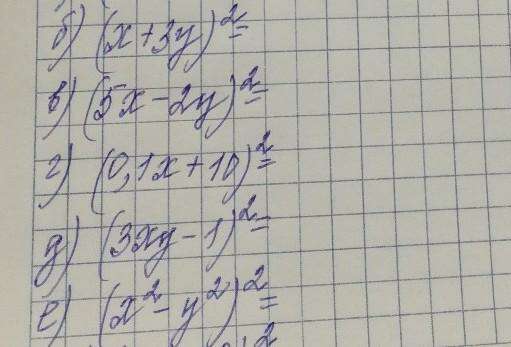 б) (x+3y)²=
в) (5x-2y)²=
г) (0,1x+10)²=
д) (3xy-1)²=
е) (x²-y²)²=